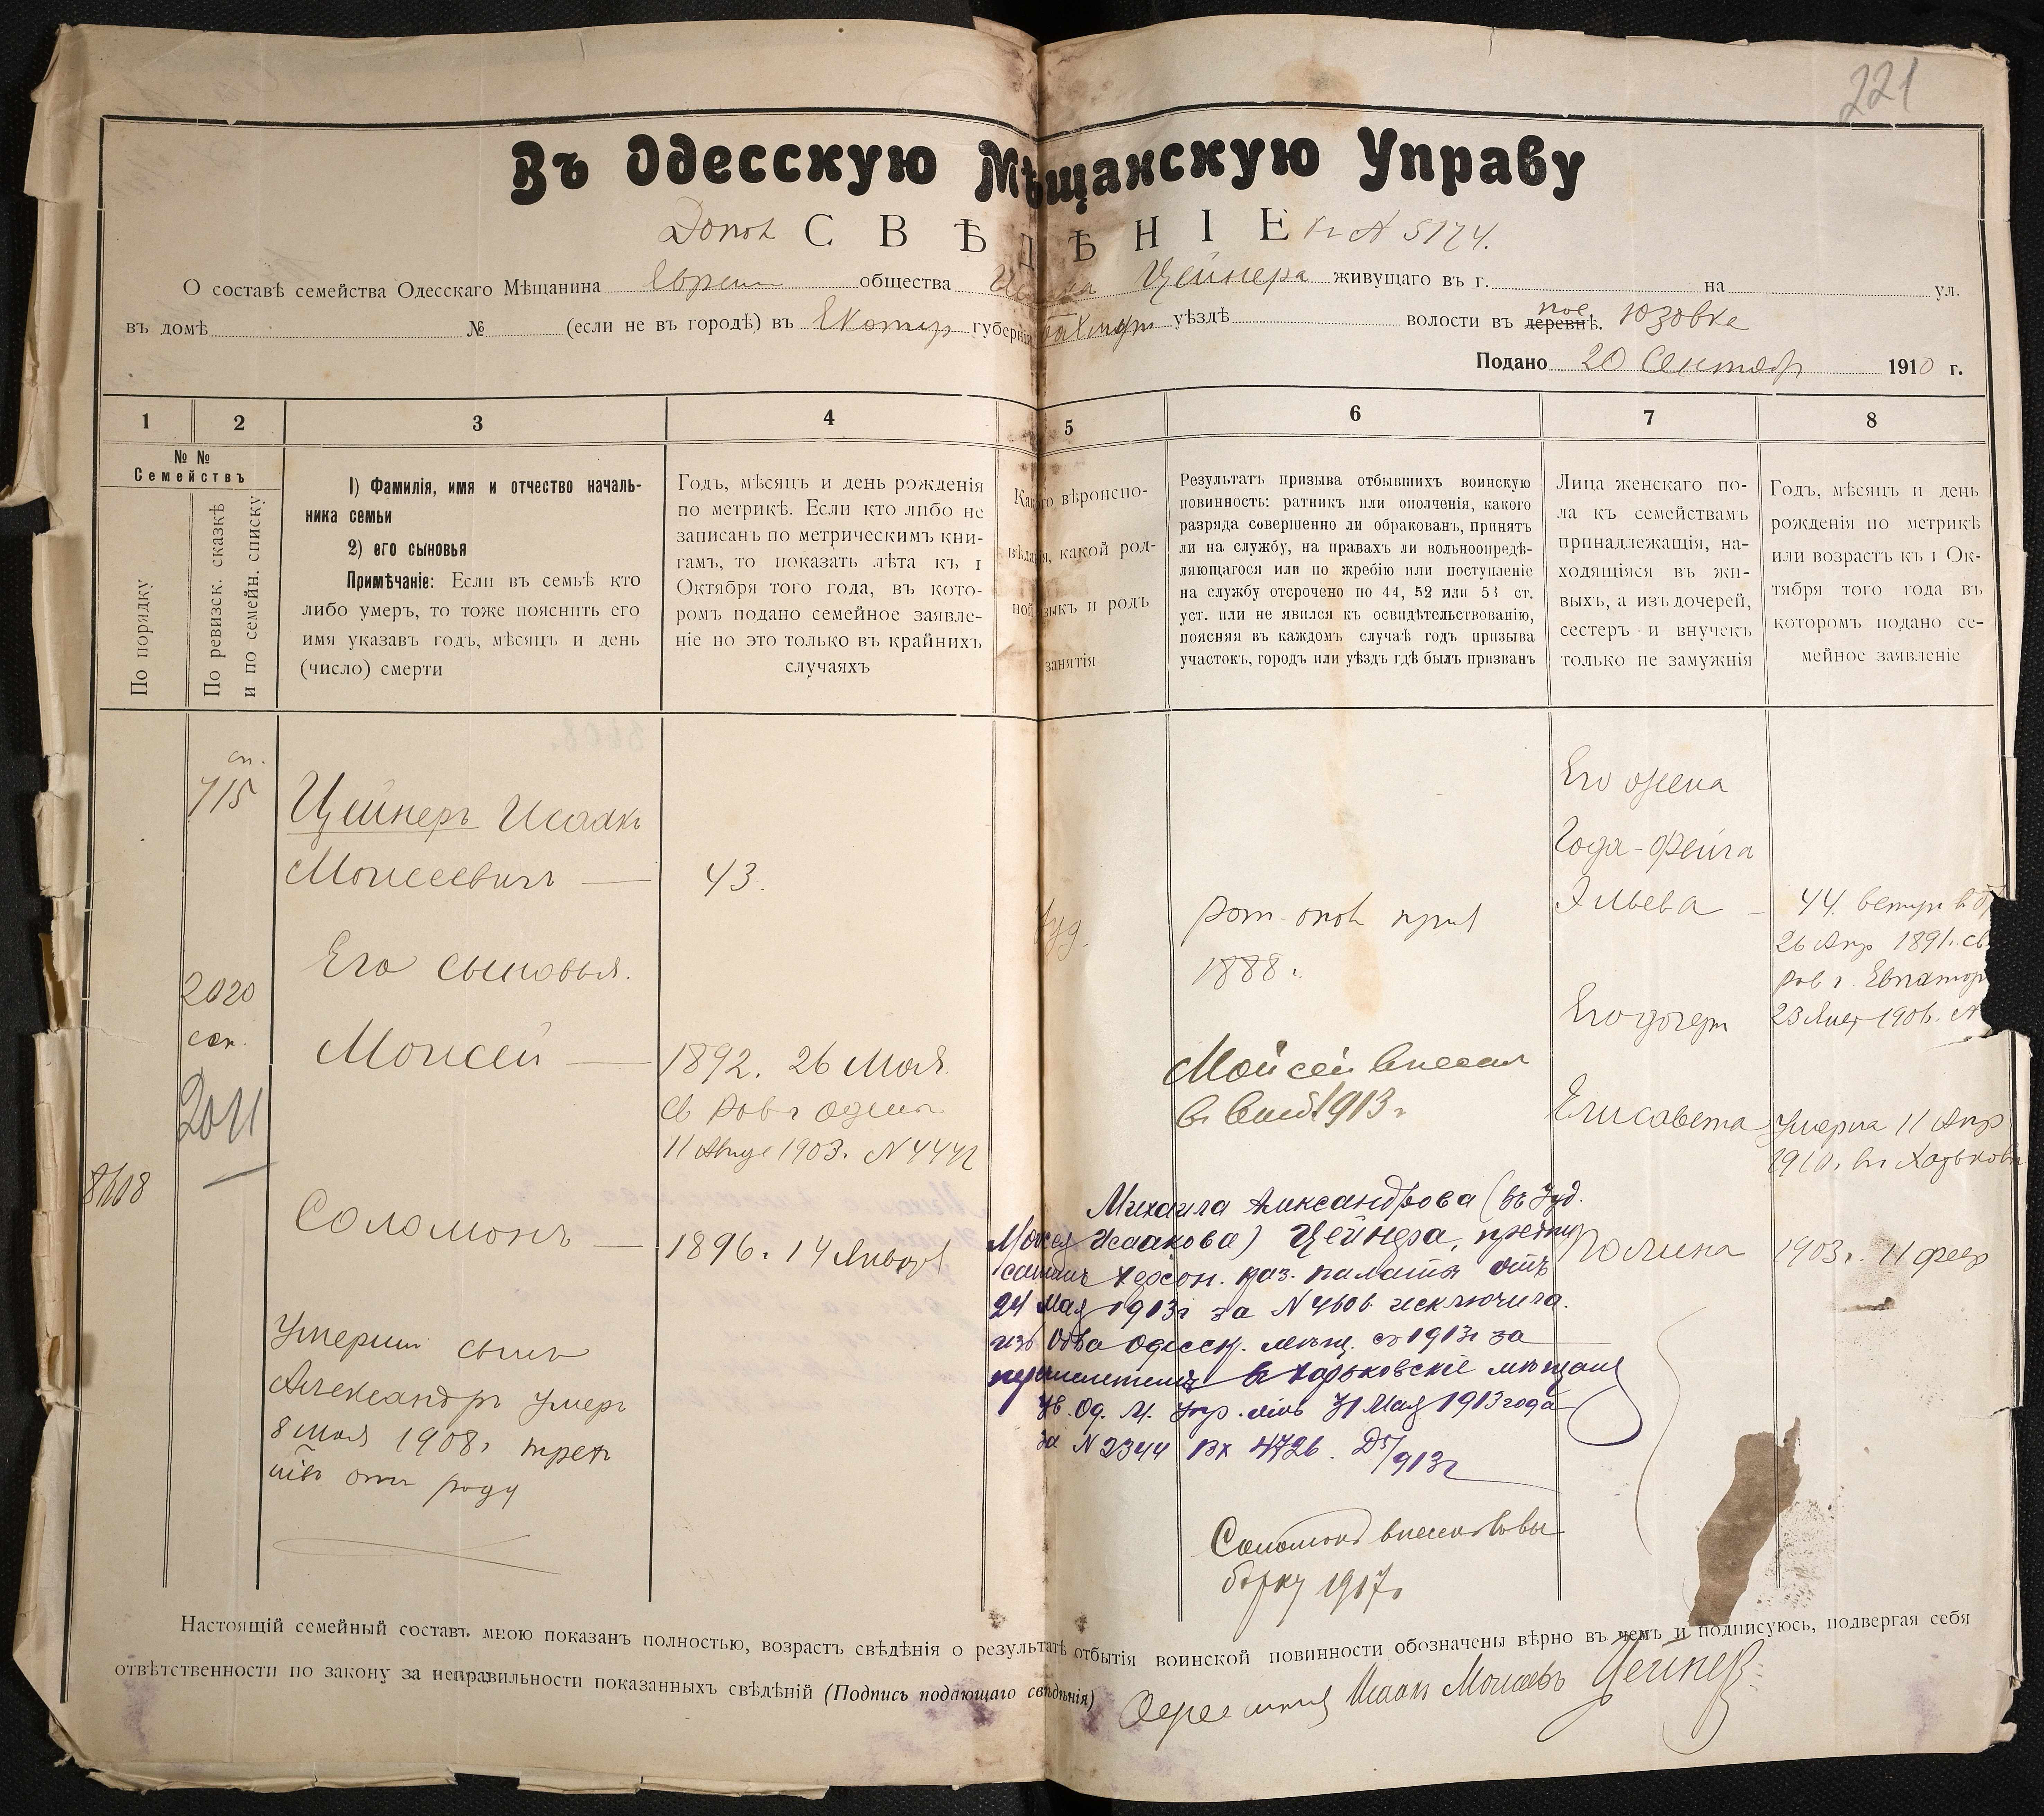 221
Въ Одесскую Мѣщанскую Управу
Допол СВѢДѢНІЕ къ А 5174.
О составѣ семейства Одесскаго Мѣщанина Евреи общества Исаака Цейнера живущаго въ г. на ул.
въ домѣ № (если не въ городѣ) въ Екатер губерніи Бахмут уѣздѣ волости въ деревнѣ. пос Юзовке
Подано 20 Сентябр 1910 г.
1 2 3 4 5 6 7 8
№ №
Семействъ
По порядку
По ревизск. сказкѣ
и по семейн. списку
1) Фамилія, имя и отчество началь-
ника семьи
2) его сыновья
Примѣчаніе: Если въ семьѣ кто
либо умеръ, то тоже пояснить его
имя указавъ годъ, мѣсяцъ и день
(число) смерти
Годъ, мѣсяцъ и день рожденія
по метрикѣ. Если кто либо не
записанъ по метрическимъ кни-
гамъ, то показать лѣта къ 1
Октября того года, въ кото-
ромъ подано семейное заявле-
ніе но это только въ крайнихъ
случаяхъ
Какого вѣроиспо-
вѣданія, какой род-
ной языкъ и родъ
занятія
Результатъ призыва отбывшихъ воинскую
повинность: ратникъ или ополченія, какого
разряда совершенно ли обракованъ, принятъ
ли на службу, на правахъ ли вольноопредѣ-
ляющагося или по жребію или поступленіе
на службу отсрочено по 44, 52 или 53 ст.
уст. или не явился къ освидѣтельствованію,
поясняя въ каждомъ случаѣ годъ призыва
участокъ, городъ или уѣздъ гдѣ былъ призванъ
Лица женскаго по-
ла къ семействамъ
принадлежащія, на-
ходящіяся въ жи-
выхъ, а изъ дочерей,
сестеръ и внучекъ
только не замужнія
Годъ, мѣсяцъ и день
рожденія по метрикѣ
или возрастъ къ 1 Ок-
тября того года въ
котором подано се-
мейное заявленіе
сп.
715
2020
2011
8608
Цейнеръ Исаакъ
Моисеевичъ — 43.
Его сыновья.
Моисей — 1892. 26 Мая
св Рав г Одессы
11 Авгус 1903. N 4442
Соломонъ — 1896. 14 Января
Умерший сынъ
Александръ умеръ
8 мая 1908г трет
ій отъ роду
Іуд.
рат. опол приз
1888 г.
Мойсей внесен
в 1913 г
Михаила Александрова (въ Іуд.
Моисея Исаакова) Цейнера, предпи
саніемъ Херсон. каз. палаты отъ
24 Мая 1913г за N 4606 исключила
изъ Об-ва Одесск. мѣщ. съ 1913г за
перечисленіемъ въ Харьковскіе мѣщане
Ув. Од. М. Упр. отъ 31 Мая 1913 года
за N 2344 Вх 4726. Д 5/913г
Соломонъ внесен в вы
борку 1917г
Его жена
Года-Фейга
Эльева — 44. вступ в бр
26 Апр 1891г. св.
Рав г. Евпатор
23 Янв 1906.
Его дочери
Елисавета Умерла 11 Апр
1910г. въ Харькове
Полина 1903г. 11 февр
Настоящій семейный составъ мною показанъ полностью, возрастъ свѣдѣнія о результатѣ отбытія воинской повинности обозначены вѣрно въ чемъ и подписуюсь, подвергая себя
отвѣтственности по закону за неправильности показанныхъ свѣдѣній (Подпись подающаго свѣдѣнія) Одесский Исаакъ Моисеевъ Цейнеръ